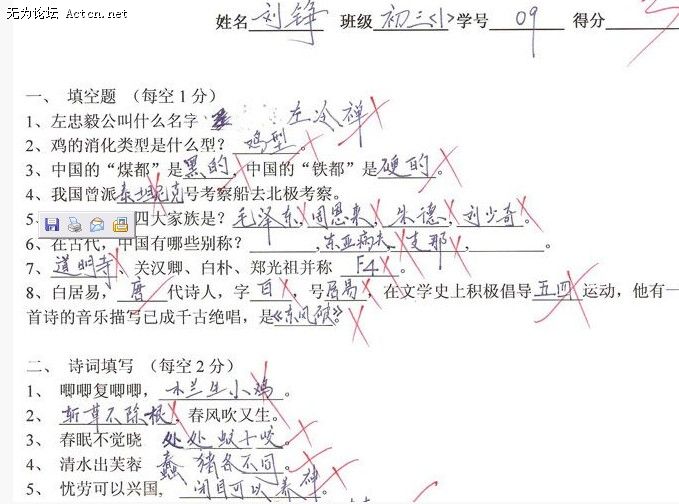 无为论坛 Actcn.net
姓名 刘铮 班级 初三<1> 学号 09 得分
一、 填空题 （每空1分）
1、左忠毅公叫什么名字 左冷禅
2、鸡的消化类型是什么型？ 鸡型。
3、中国的“煤都”是黑的，中国的“铁都”是硬的。
4、我国曾派泰坦尼克号考察船去北极考察。
5、 四大家族是？毛泽东，周恩来，朱德，刘少奇。
6、在古代，中国有哪些别称？ ，东亚病夫，支那，
7、道明寺、关汉卿、白朴、郑光祖并称 F4。
8、白居易，唐代诗人，字 自，号居易，在文学史上积极倡导五四运动，他有一
首诗的音乐描写已成千古绝唱，是《东风破》
二、 诗词填写 （每空2分）
1、 唧唧复唧唧，木兰生小鸡。
2、 斩草不除根，春风吹又生。
3、 春眠不觉晓 处处蚊子咬。
4、 清水出芙蓉 蠢猪各不同。
5、 忧劳可以兴国， 闭目可以养神